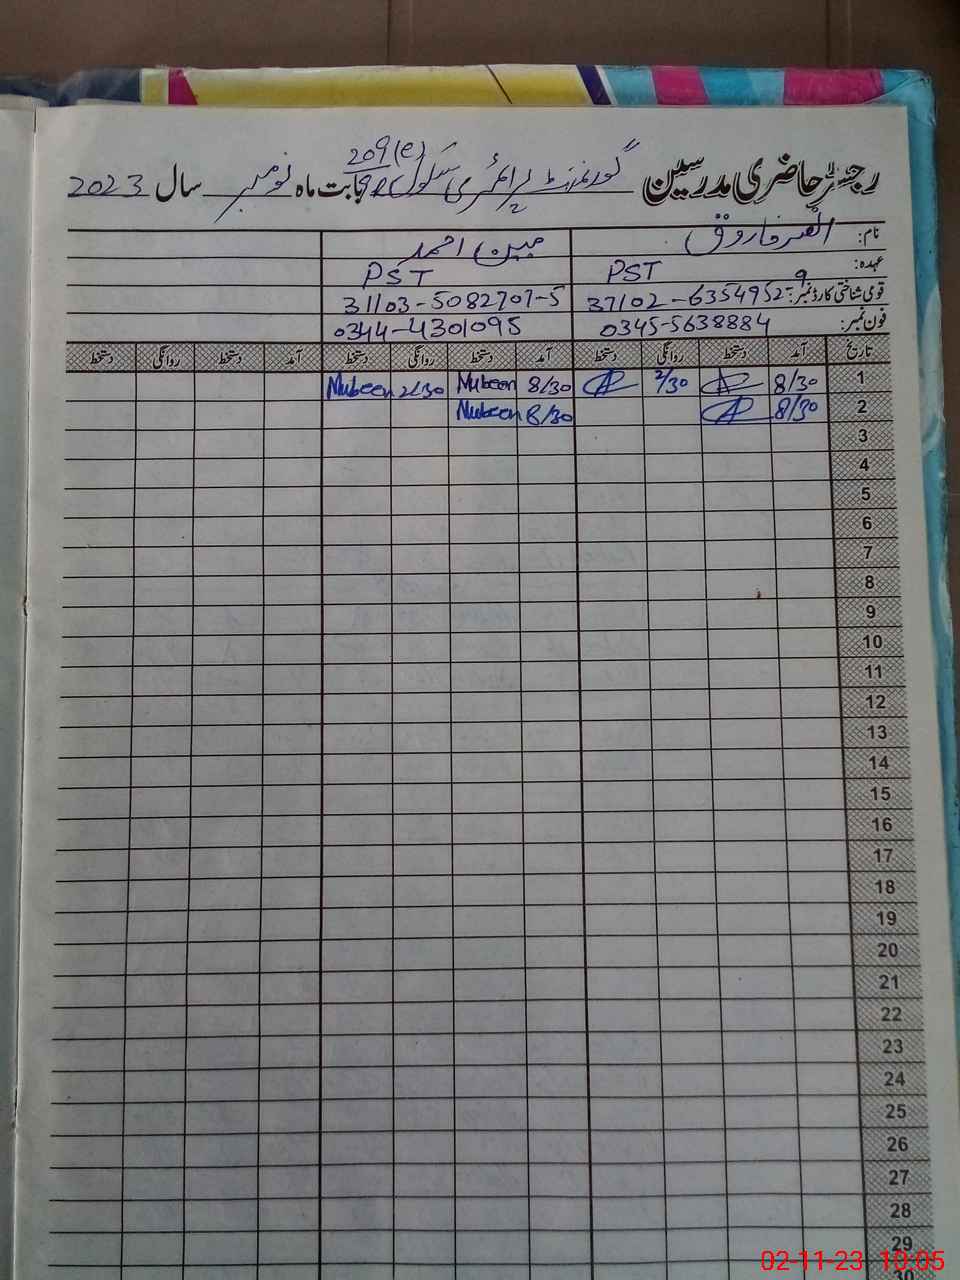 رجسٹر حاضری مدرسین گورنمنٹ پرائمری سکول 209(e) بابت ماہ نومبر سال 2023
نام: فاروق مبین احمد
عہدہ: PST PST
قومی شناختی کارڈ نمبر: 37102-6354952-9 31103-5082707-5
فون نمبر: 0345-5638884 0344-4301095
تاریخ آمد دستخط روانگی دستخط آمد دستخط روانگی دستخط آمد دستخط روانگی دستخط
1 8/30 2/30 8/30 Mubeen 2/30 Mubeen
2 8/30 8/30 Mubeen
3
4
5
6
7
8
9
10
11
12
13
14
15
16
17
18
19
20
21
22
23
24
25
26
27
28
29
30
02-11-23 10:05